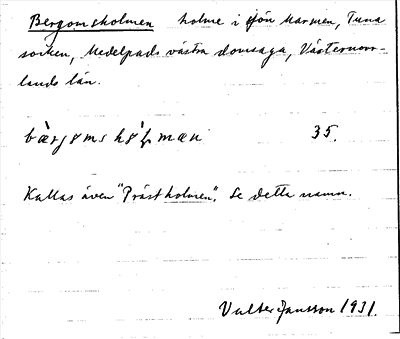 Bergomsholmen holme i sjön Marmen, Tuna
socken, Medelpads västra domsaga, Västernorr-
lands län.
35.
Kallas även "Prästholmen". Se detta namn.
Valter Jansson 1931.